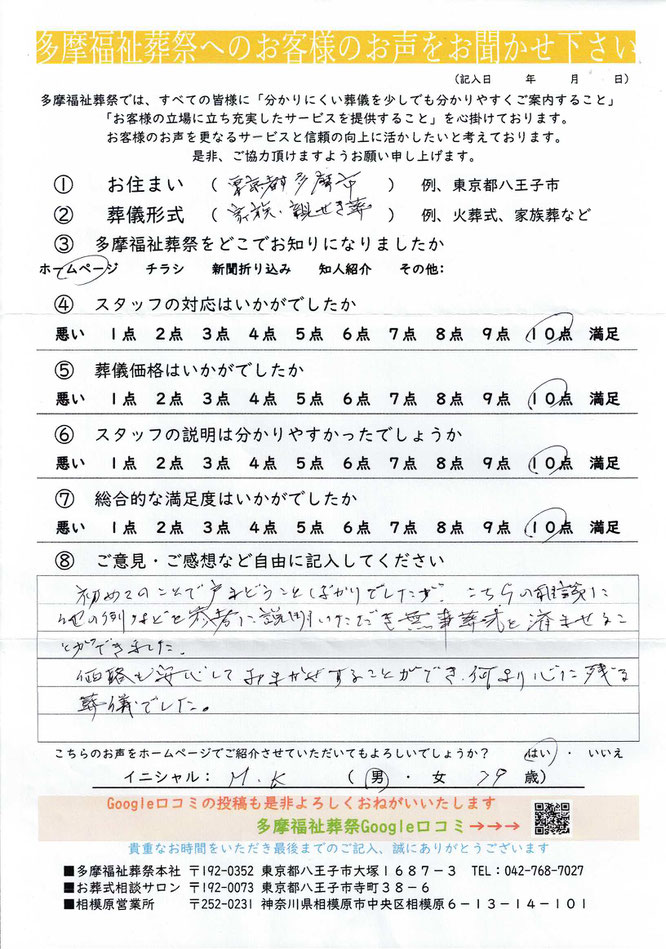 多摩福祉葬祭へのお客様のお声をお聞かせ下さい
(記入日 年 月 日)
多摩福祉葬祭では、すべての皆様に「分かりにくい葬儀を少しでも分かりやすくご案内すること」
「お客様の立場に立ち充実したサービスを提供すること」を心掛けております。
お客様のお声を更なるサービスと信頼の向上に活かしたいと考えております。
是非、ご協力頂けますようお願い申し上げます。
① お住まい (東京都多摩市) 例、東京都八王子市
② 葬儀形式 (家族・親せき葬) 例、火葬式、家族葬など
③ 多摩福祉葬祭をどこでお知りになりましたか
ホームページ チラシ 新聞折り込み 知人紹介 その他:
④ スタッフの対応はいかがでしたか
悪い 1点 2点 3点 4点 5点 6点 7点 8点 9点 10点 満足
⑤ 葬儀価格はいかがでしたか
悪い 1点 2点 3点 4点 5点 6点 7点 8点 9点 10点 満足
⑥ スタッフの説明は分かりやすかったでしょうか
悪い 1点 2点 3点 4点 5点 6点 7点 8点 9点 10点 満足
⑦ 総合的な満足度はいかがでしたか
悪い 1点 2点 3点 4点 5点 6点 7点 8点 9点 10点 満足
⑧ ご意見・ご感想など自由に記入してください
初めてのことで戸まどうことばかりでしたが、こちらの相談に
他の例などを参考に説明いただき無事葬式を済ませるこ
とができました。
価格も安心しておまかせすることができ、何より心に残る
葬儀でした。
こちらのお声をホームページでご紹介させていただいてもよろしいでしょうか? はい ・ いいえ
イニシャル: M.K (男・女 79 歳)
Google口コミの投稿も是非よろしくおねがいいたします
多摩福祉葬祭Google口コミ→→→
貴重なお時間をいただき最後までのご記入、誠にありがとうございます
■多摩福祉葬祭本社 〒192-0352 東京都八王子市大塚1687-3 TEL:042-768-7027
■お葬式相談サロン 〒192-0073 東京都八王子市寺町38-6
■相模原営業所 〒252-0231 神奈川県相模原市中央区相模原6-13-14-101